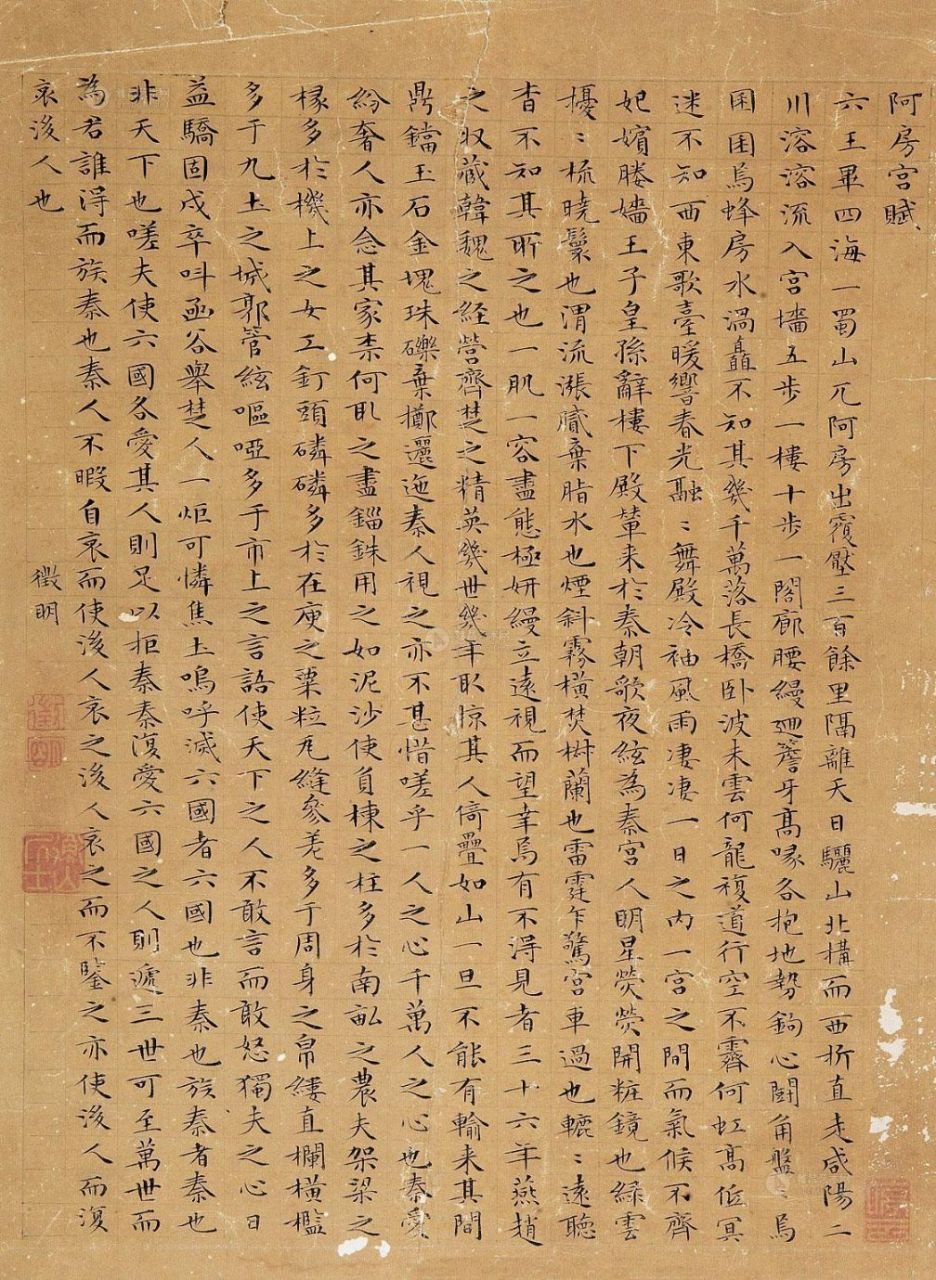 阿房宫賦
六王畢四海一蜀山兀阿房出覆壓三百餘里隔離天日驪山北構而西折直走咸陽二
川溶溶流入宫墻五步一樓十步一閣廊腰縵迴簷牙髙喙各抱地勢鉤心鬪角盤〻焉
囷囷焉蜂房水渦矗不知其幾千萬落長橋卧波未雲何龍複道行空不霽何虹髙低冥
迷不知西東歌臺暖響春光融〻舞殿冷袖風雨凄凄一日之内一宫之間而氣候不齊
妃嬪媵嬙王子皇孫辭樓下殿輦来於秦朝歌夜絃為秦宫人明星熒熒開粧鏡也緑雲
擾〻梳曉鬟也渭流漲膩棄脂水也煙斜霧橫焚椒蘭也雷霆乍驚宫車過也轆〻遠聽
杳不知其所之也一肌一容盡態極妍縵立遠視而望幸焉有不得見者三十六年燕趙
之収藏韓魏之経營齊楚之精英幾世幾年取掠其人倚疊如山一旦不能有輸来其間
鼎鐺玉石金塊珠礫棄擲邐迤秦人視之亦不甚惜嗟乎一人之心千萬人之心也秦愛
紛奢人亦念其家柰何取之盡錙銖用之如泥沙使負棟之柱多於南畝之農夫架梁之
椽多於機上之女工釘頭磷磷多於在庾之粟粒瓦縫參差多于周身之帛縷直欄橫檻
多于九土之城郭管絃嘔啞多于市上之言語使天下之人不敢言而敢怒獨夫之心日
益驕固戍卒呌函谷舉楚人一炬可憐焦土嗚呼滅六國者六國也非秦也族秦者秦也
非天下也嗟夫使六國各愛其人則足以拒秦秦復愛六國之人則遞三世可至萬世而
為君誰得而族秦也秦人不暇自哀而使後人哀之後人哀之而不鑒之亦使後人而復
哀後人也
徵明